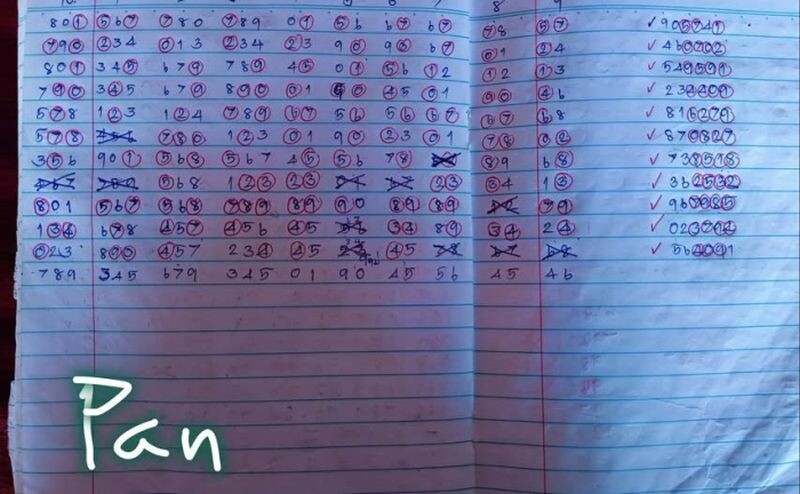 801 567 780 789 01 56 67 67 78 57 ✓ 905741
790 234 013 234 23 90 90 67 01 24 ✓ 460202
801 345 679 789 45 01 56 12 12 13 ✓ 549591
790 345 679 890 01 90 45 01 90 46 ✓ 234409
578 123 124 789 67 56 56 67 67 68 ✓ 816279
578 780 123 01 90 23 01 78 02 ✓ 870827
356 901 568 567 45 56 78 89 68 ✓ 738518
568 123 23 23 34 13 ✓ 362532
801 567 568 789 89 90 89 89 79 ✓
134 678 457 456 45 34 89 34 24 ✓
023 890 457 234 45 45 ✓ 564091
789 345 679 345 01 90 45 56 45 46
Pan